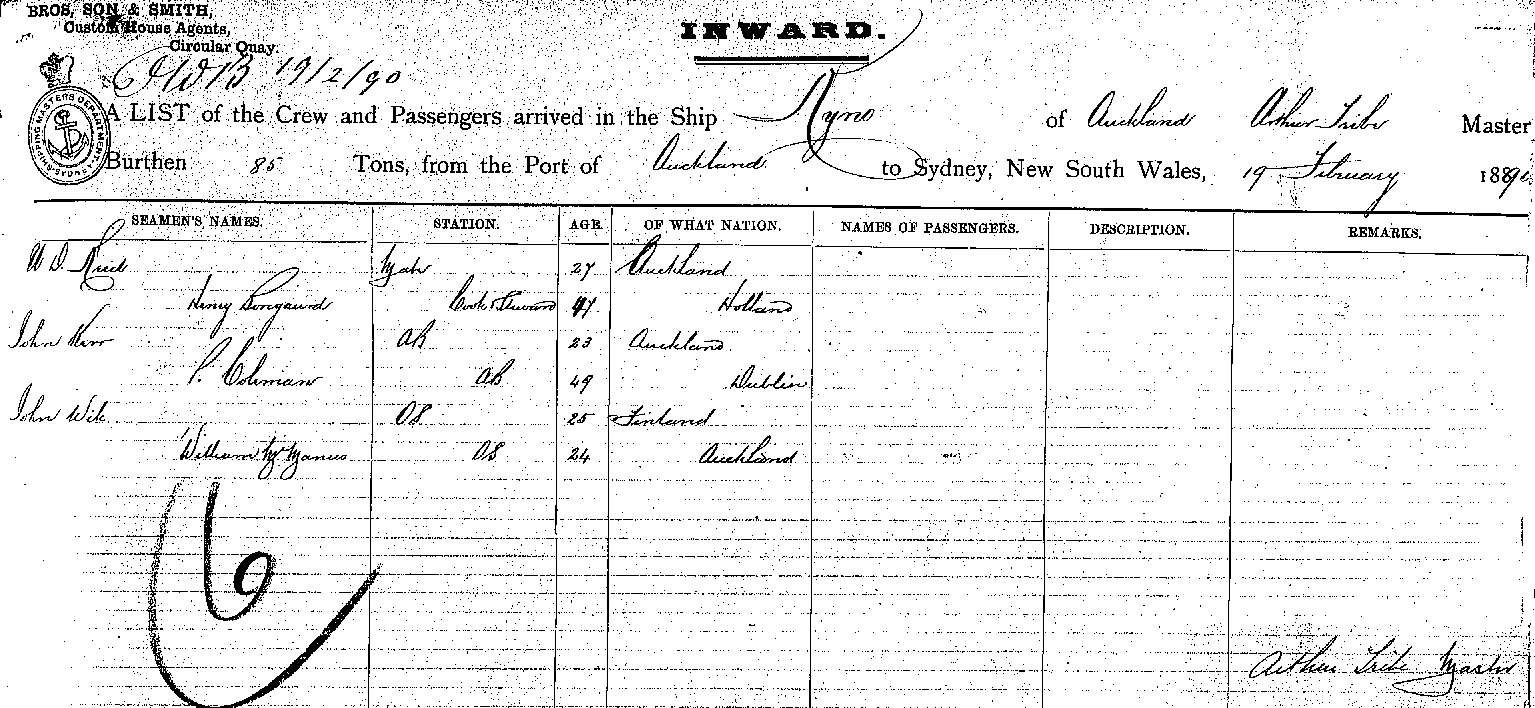 BROS, SON & SMITH,
Custom House Agents,
Circular Quay.
INWARD.
19/2/90
SHIPPING MASTERS DEPARTMENT
A LIST of the Crew and Passengers arrived in the Ship Ryno of Auckland Arthur Tribe Master
Burthen 85 Tons, from the Port of Auckland to Sydney, New South Wales, 19 February 1890
SEAMEN'S NAMES. STATION. AGE. OF WHAT NATION. NAMES OF PASSENGERS. DESCRIPTION. REMARKS.
W D. Reid Mate 27 Auckland
Henry 47 Holland
John Kerr AB 23 Auckland
P. Coleman AB 49 Dublin
John Wik OS 25 Finland
William McManus OS 24 Auckland
6
Arthur Tribe Master